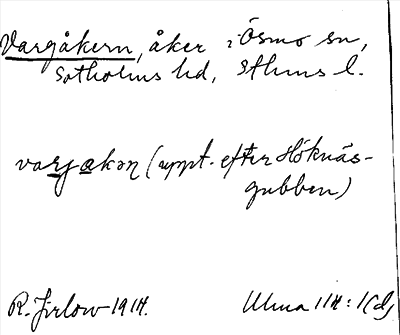 Vargåkern, åker i Ösmo sn,
Sotholms hd, Sthms l.
vargakən (uppt. efter Höknäs-
gubben)
R. Jirlow 1914. Ulma 114:1(d)